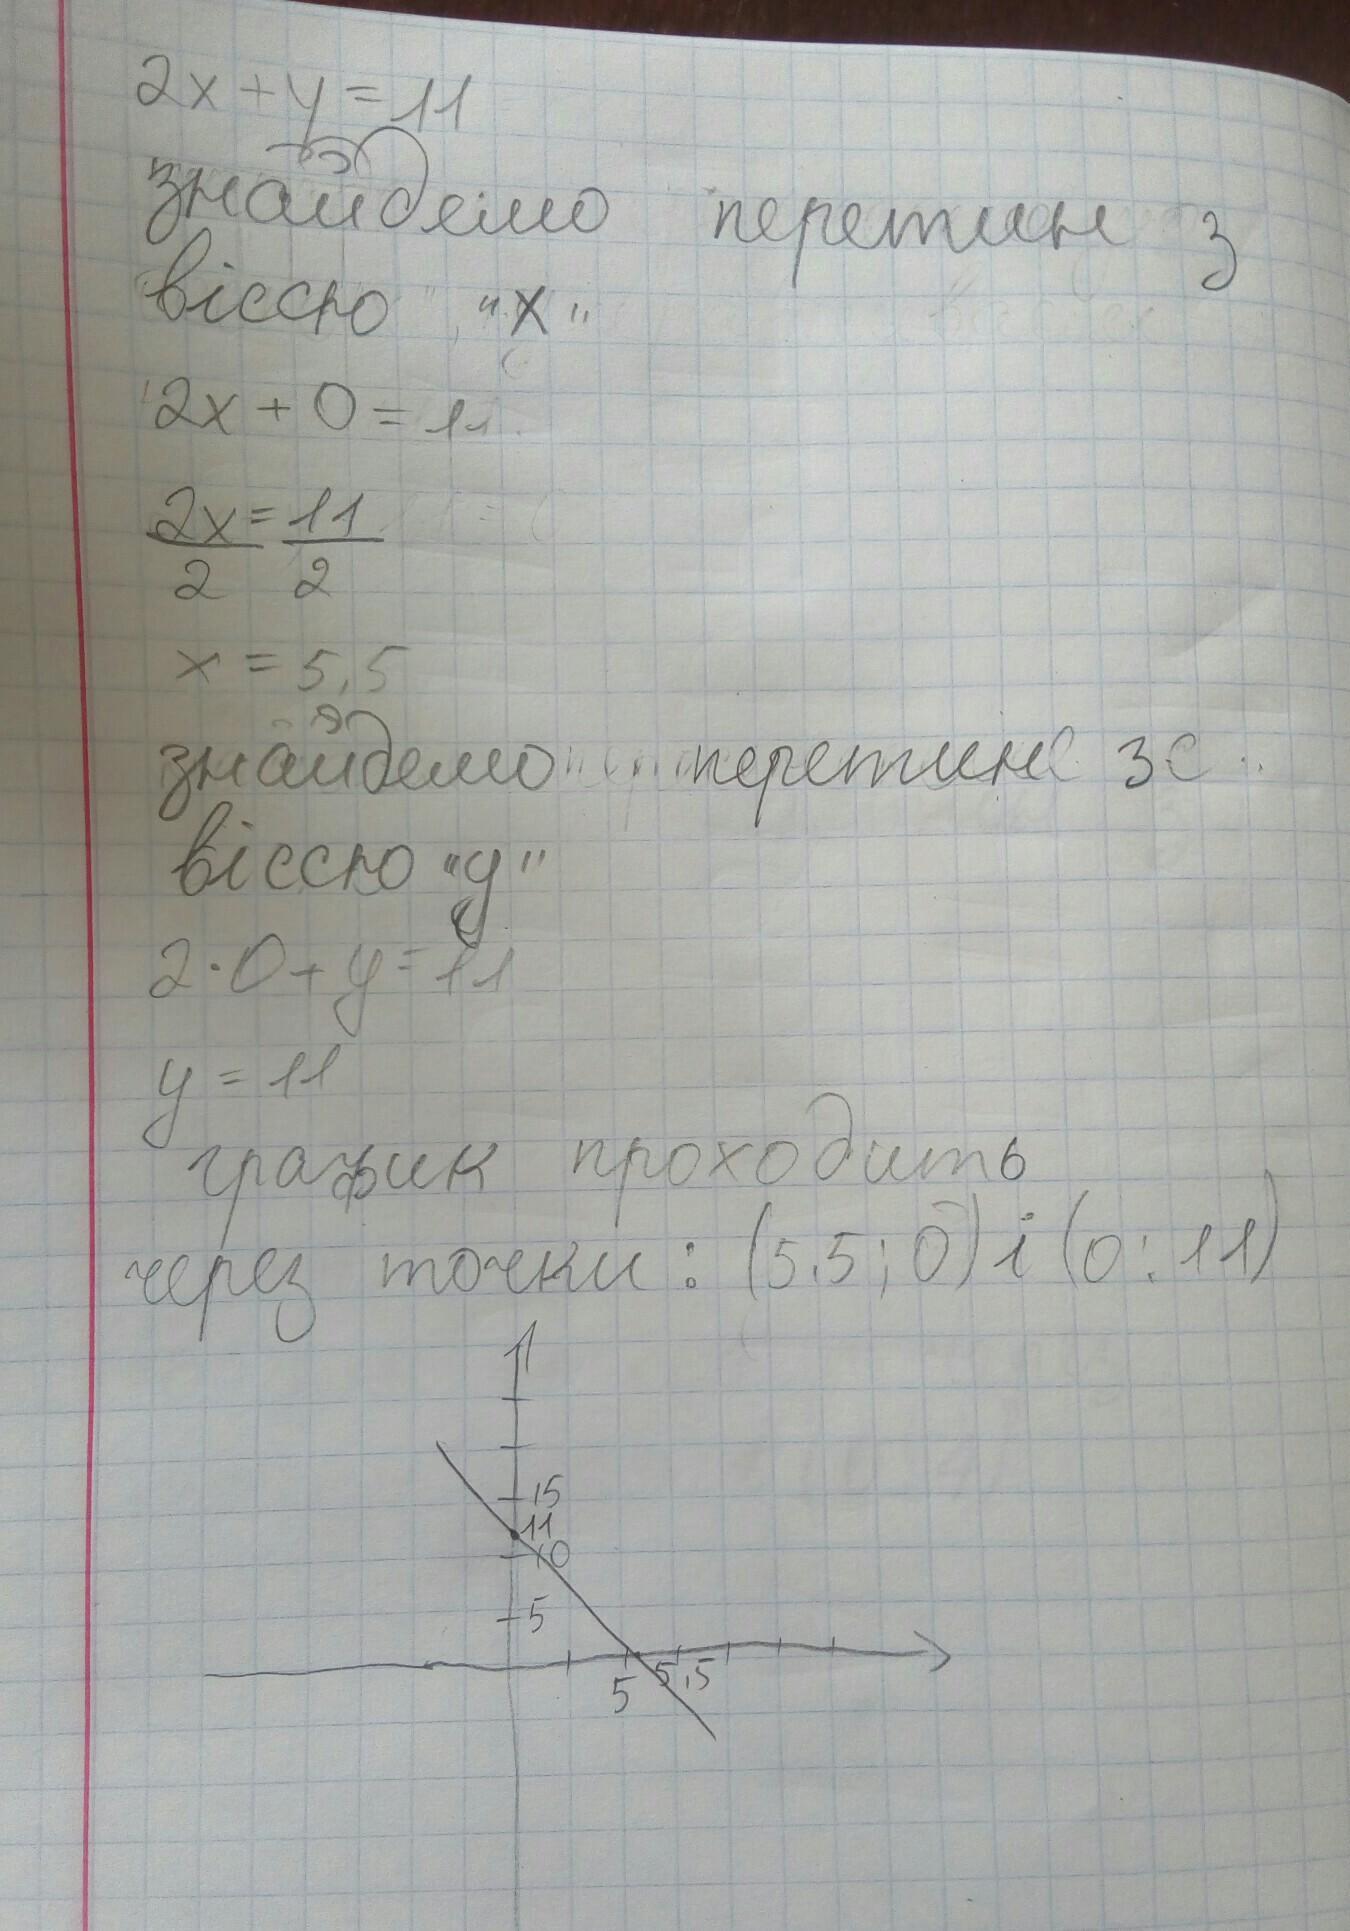 2x+y=11
знайдемо перетин з
віссю "x"
2x+0=11
2x=11
2 2
x=5,5
знайдемо перетин з
віссю "y"
2·0+y=11
y=11
графік проходить
через точки: (5.5;0) і (0;11)
15
11
10
5
5 5,5